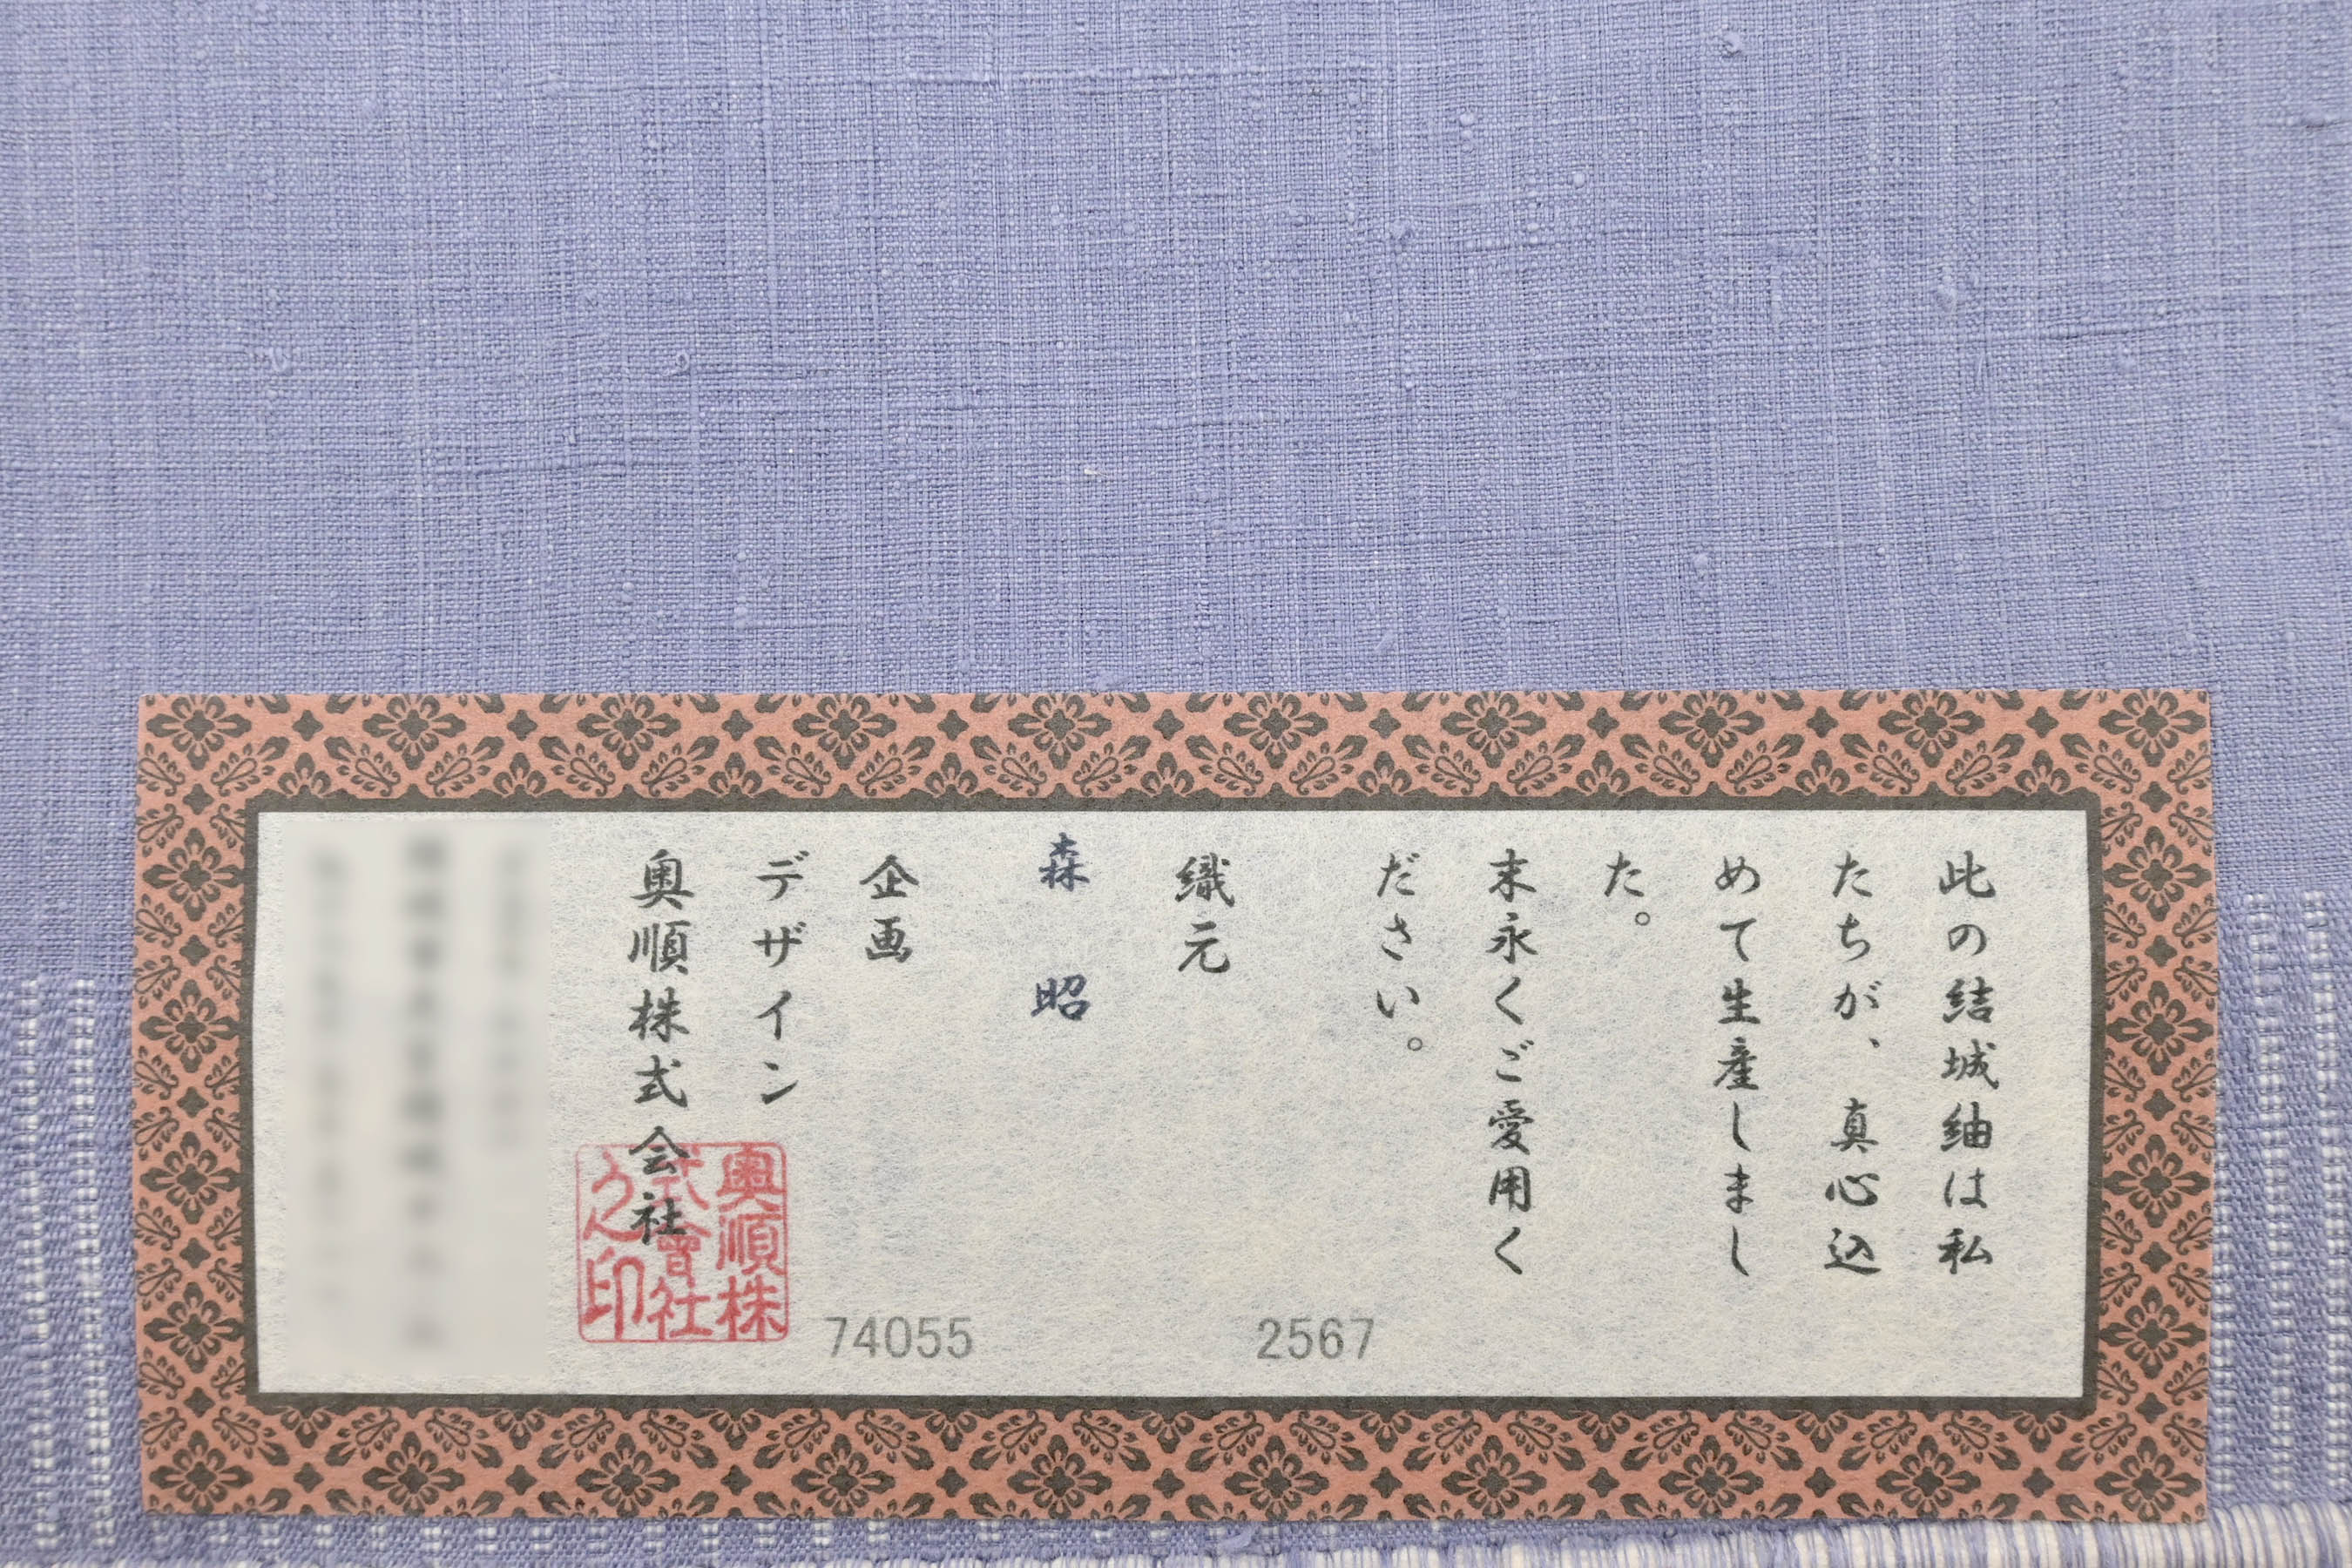 此の結城紬は私
たちが、真心込
めて生産しまし
た。
末永くご愛用く
ださい。
織元
森 昭
企画
デザイン
奥順株式会社
奥順株
式會社
之印
2567
74055